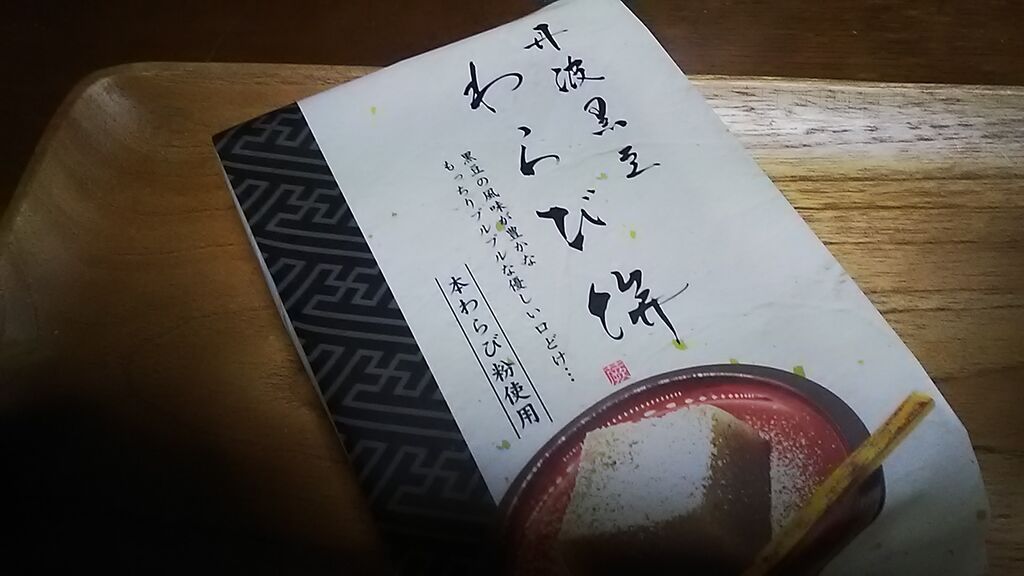 丹波黒豆
わらび餅
黒豆の風味が豊かな
もっちりプルプルな優しい口どけ…
本わらび粉使用